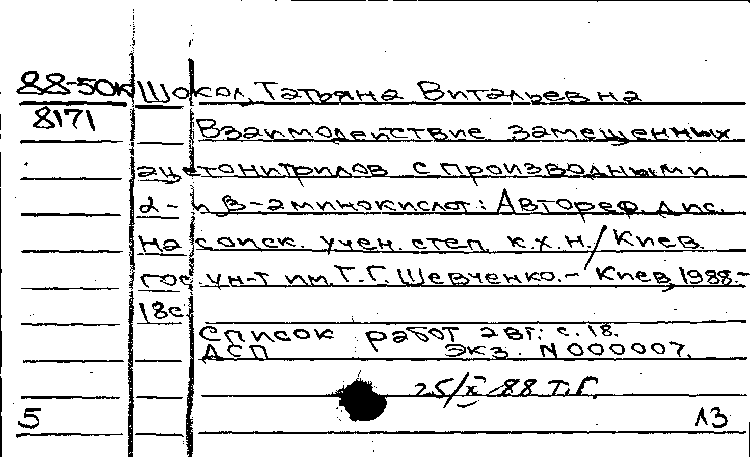 88-50к Шокол, Татьяна Витальевна
8171 Взаимодействие замещенных
ацетонитрилов с производными
α- и β-аминокислот: Автореф. дис.
на соиск. учен. степ. к.х.н. / Киев.
гос. ун-т им. Т.Г. Шевченко.- Киев, 1988.-
18с.
Список работ авт.: с. 18.
ДСП Экз. N 000007.
25/X 88 Т.Г.
5 13